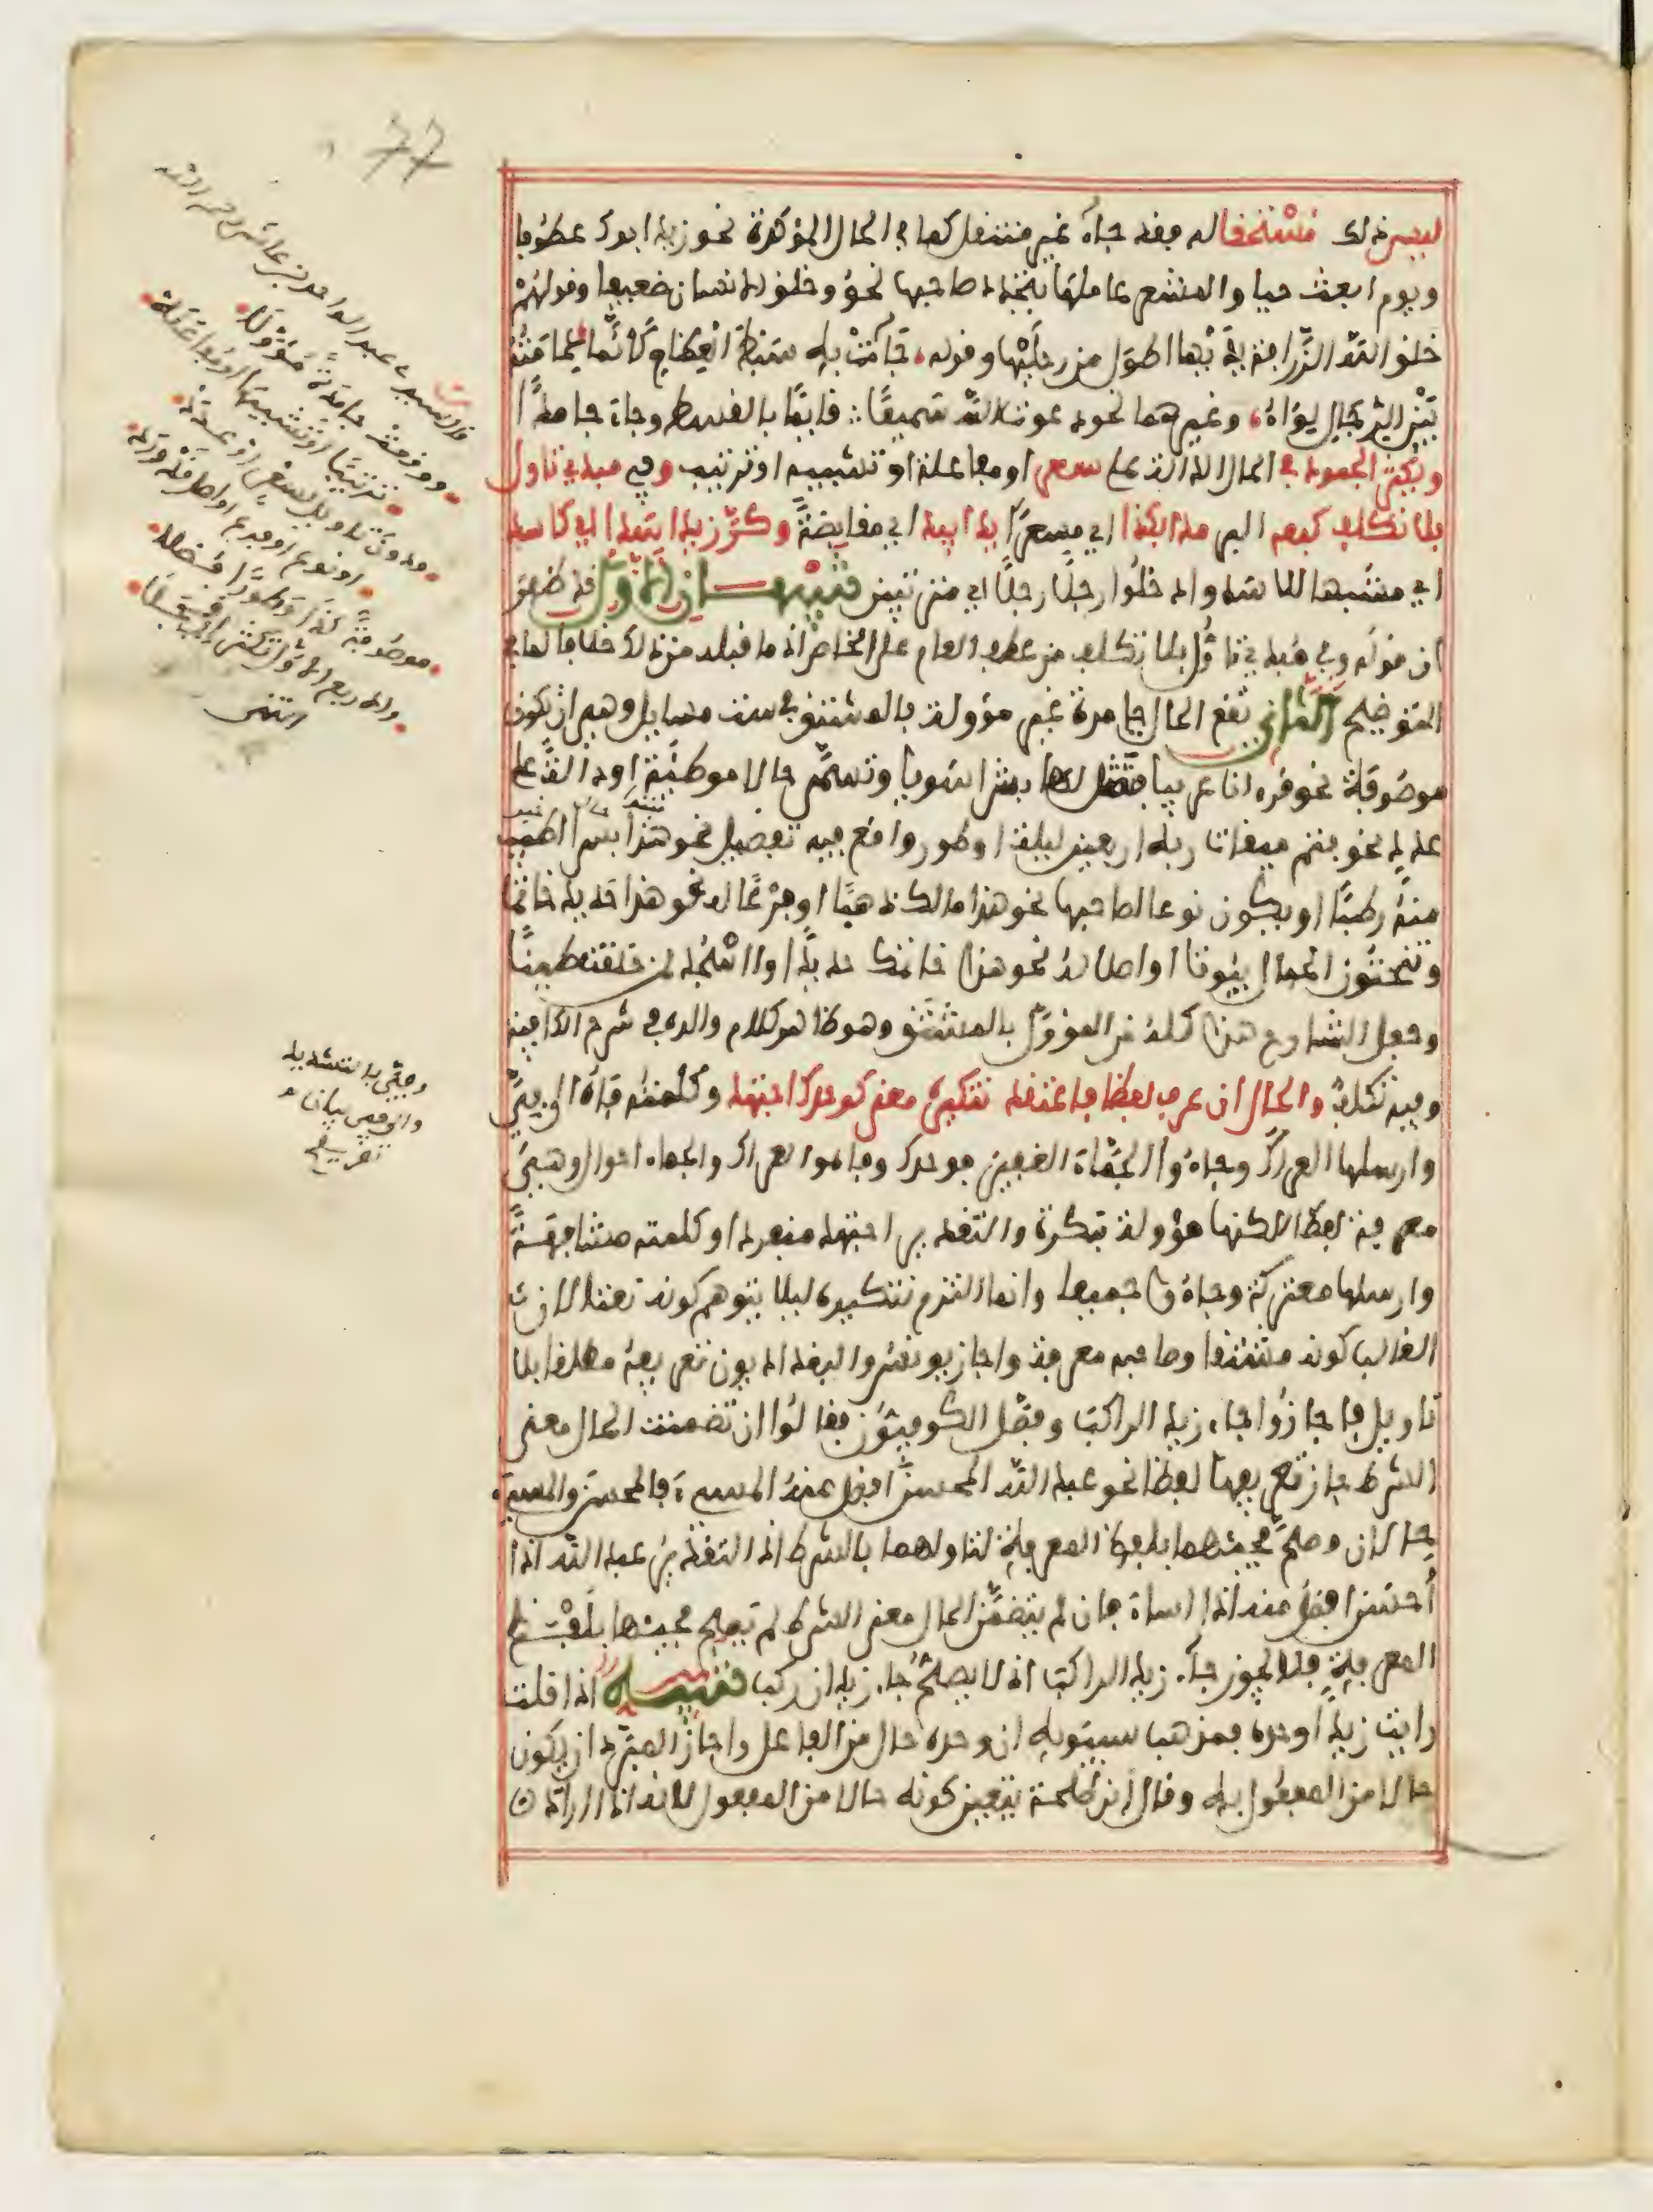 ليس ذلك مستحقا له فقد جاء غير منتقل كما في الحال المؤكدة نحو زيد ابوك عطوفا
ويوم ابعث حيا والمشعر عاملها بتجدد صاحبها نحو وخلق الانسان ضعيفا وقولهم
خلق الله الزرافة يديها اطول من رجليها وقوله، فجاءت به سبط العظام كأنما عمامته
بين الرجال لواء، وغيرهما نحو دعوت الله سميعا: قايما بالقسط وجاء جامدا
ويكثر الجمود في الحال الدالة على سعر او مفاعلة او تشبيه او ترتيب وفي مبدي تاول
بلا تكلف كبعه البر مدا بكذا اي مسعرا يدا بيد اي مقايضة وكر زيد اسدا اي كاسد
اي مشبها للاسد وادخلوا رجلا رجلا اي مترتبين تنبيهان الاول قد ظهر
ان قوله وفي مبدي تاول بلا تكلف من عطف العام على الخاص اذ ما قبله من ذلك خلافا لما في
التوضيح الثاني تقع الحال جامدة غير مؤولة بالمشتق في ست مسايل وهي ان تكون
موصوفة نحو قرءانا عربيا فتمثل لها بشرا سويا وتسمى حالا موطئة او دالة على
عدد نحو فتم ميقات ربه اربعين ليلة او طور واقع فيه تفضيل نحو هذا بسرا اطيب
منه رطبا او يكون نوعا لصاحبها نحو هذا مالك ذهبا او فرعا له نحو هذا حديدك خاتما
وتنحتون الجبال بيوتا او اصلا له نحو هذا خاتمك حديدا واسجد لمن خلقت طينا
وجعل الشارح هذا كله من المؤول بالمشتق وهو ظاهر كلام والده في شرح الكافية
وفيه تكلف والحال ان عرف لفظا فاعتقد تنكيره معنى كوحدك اجتهد وكلمته فاه الى في
وارسلها العراك وجاءوا الجماء الغفير فوحدك وفاه والعراك والجماء احوال وهي
معرفة لفظا لكنها مؤولة بنكرة والتقدير اجتهد منفردا وكلمته مشافهة
وارسلها معتركة وجاءوا جميعا وانما التزم تنكيره ليلا يتوهم كونه نعتا لان
الغالب كونه مشتقا وصاحبه معرفة واجاز يونس والبغداديون تعريفه مطلقا بلا
تاويل فاجازوا جاء زيد الراكب وفصل الكوفيون فقالوا ان تضمنت الحال معنى
الشرط جاز تعريفها لفظا نحو عبد الله المحسن افضل منه المسيء فالمحسن والمسيء
حالان وصح مجيئهما بلفظ المعرفة لتاولهما بالشرط اذ التقدير عبد الله اذا
أحسن افضل منه اذا اساء فان لم يتضمن الحال معنى الشرط لم يصح مجيئها بلفظ
المعرفة فلا يجوز جاء زيد الراكب اذ لا يصلح جاء زيد ان ركب تنبيه اذا قلت
رايت زيدا وحده فمذهب سيبويه ان وحده حال من الفاعل واجاز المبرد ان يكون
حالا من المفعول به وقال ابن طلحة يتعين كونه حالا من المفعول لانه اذا اراد
77
قال سيدي عبد الواحد بن عاشر رحمه الله
ووقعت جامدة مؤولة
ترتيبا او تشبيها او مفاعلة
ودون تاويل بسعر او عدد
او نوع او فرع او اصل قد ورد
موصوفة كذا وطورا فضلا
انتهى